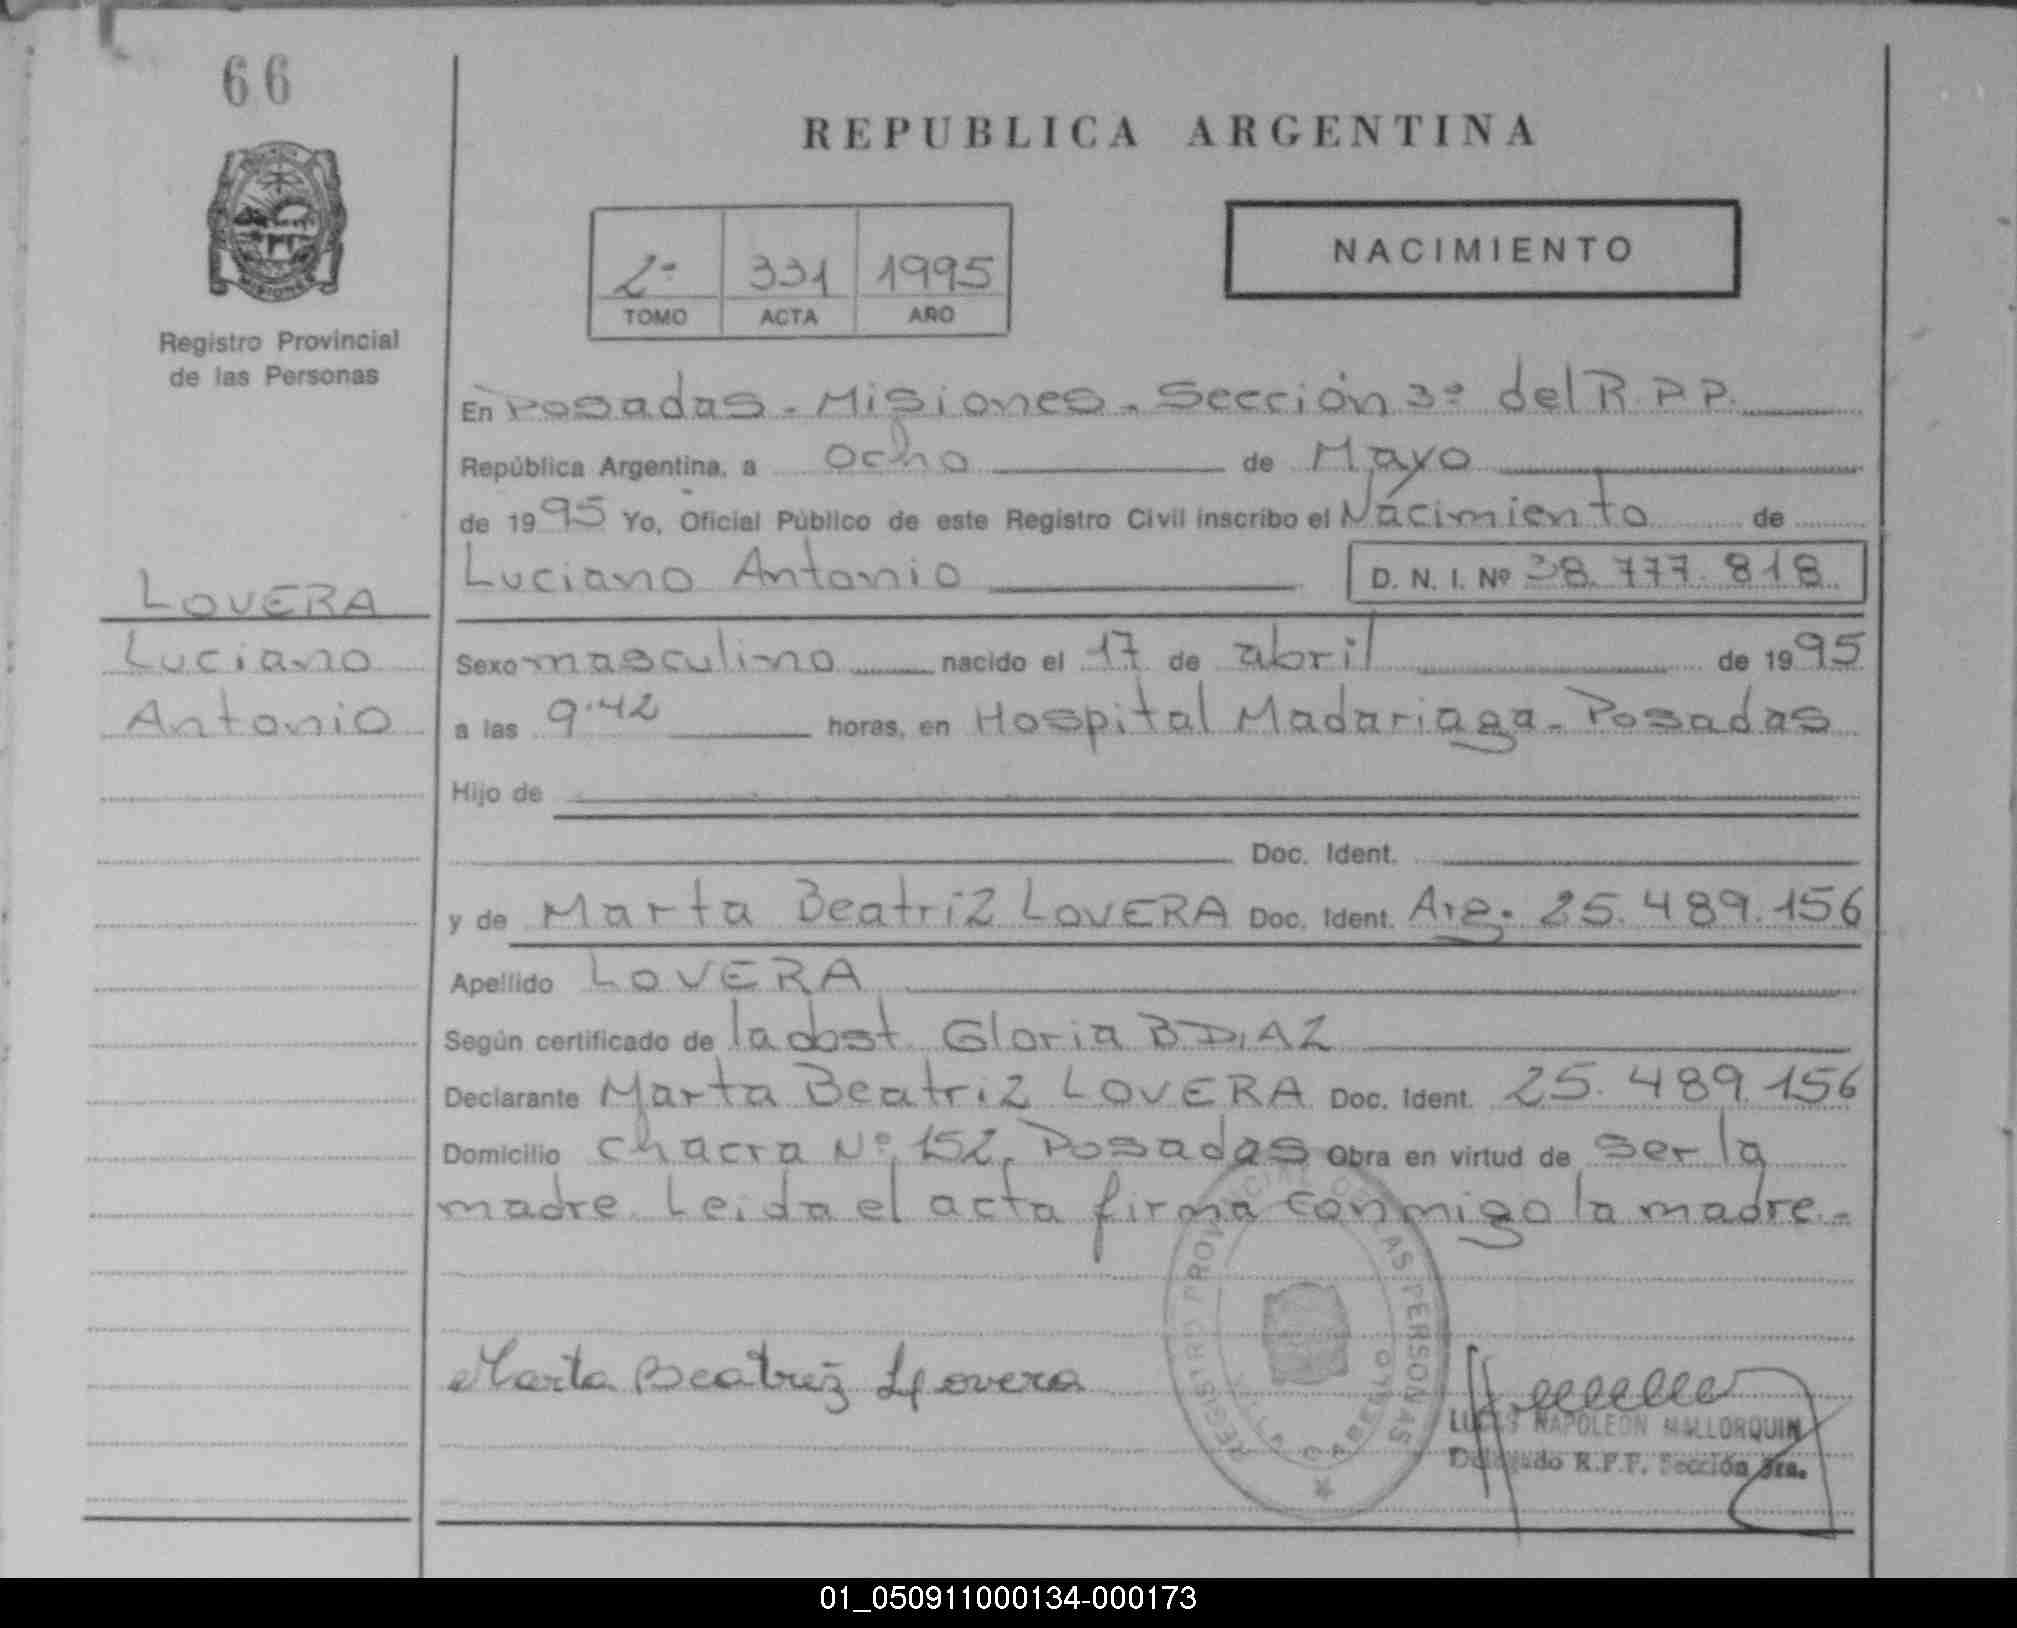 66
REPUBLICA ARGENTINA
NACIMIENTO
2º 331 1995
TOMO ACTA AÑO
MISIONES
Registro Provincial
de las Personas
En Posadas - Misiones - Sección 3º del R.P.P.
República Argentina, a ocho de Mayo
de 1995 Yo, Oficial Público de este Registro Civil inscribo el Nacimiento de
Luciano Antonio D. N. I. Nº 38.777.818
LOVERA
Luciano
Antonio
Sexo masculino nacido el 17 de abril de 1995
a las 9.42 horas, en Hospital Madariaga - Posadas
Hijo de
Doc. Ident.
y de Marta Beatriz LOVERA Doc. Ident. Arg. 25.489.156
Apellido LOVERA
Según certificado de la obst. Gloria B DIAZ
Declarante Marta Beatriz LOVERA Doc. Ident. 25.489.156
Domicilio Chacra Nº 152, Posadas Obra en virtud de ser la
madre. Leida el acta firma conmigo la madre.-
REGISTRO PROVINCIAL DE LAS PERSONAS
Marta Beatriz Lovera
LUCAS NAPOLEON MALLORQUIN
Delegado R.P.P. Sección 3ra.
01_050911000134-000173